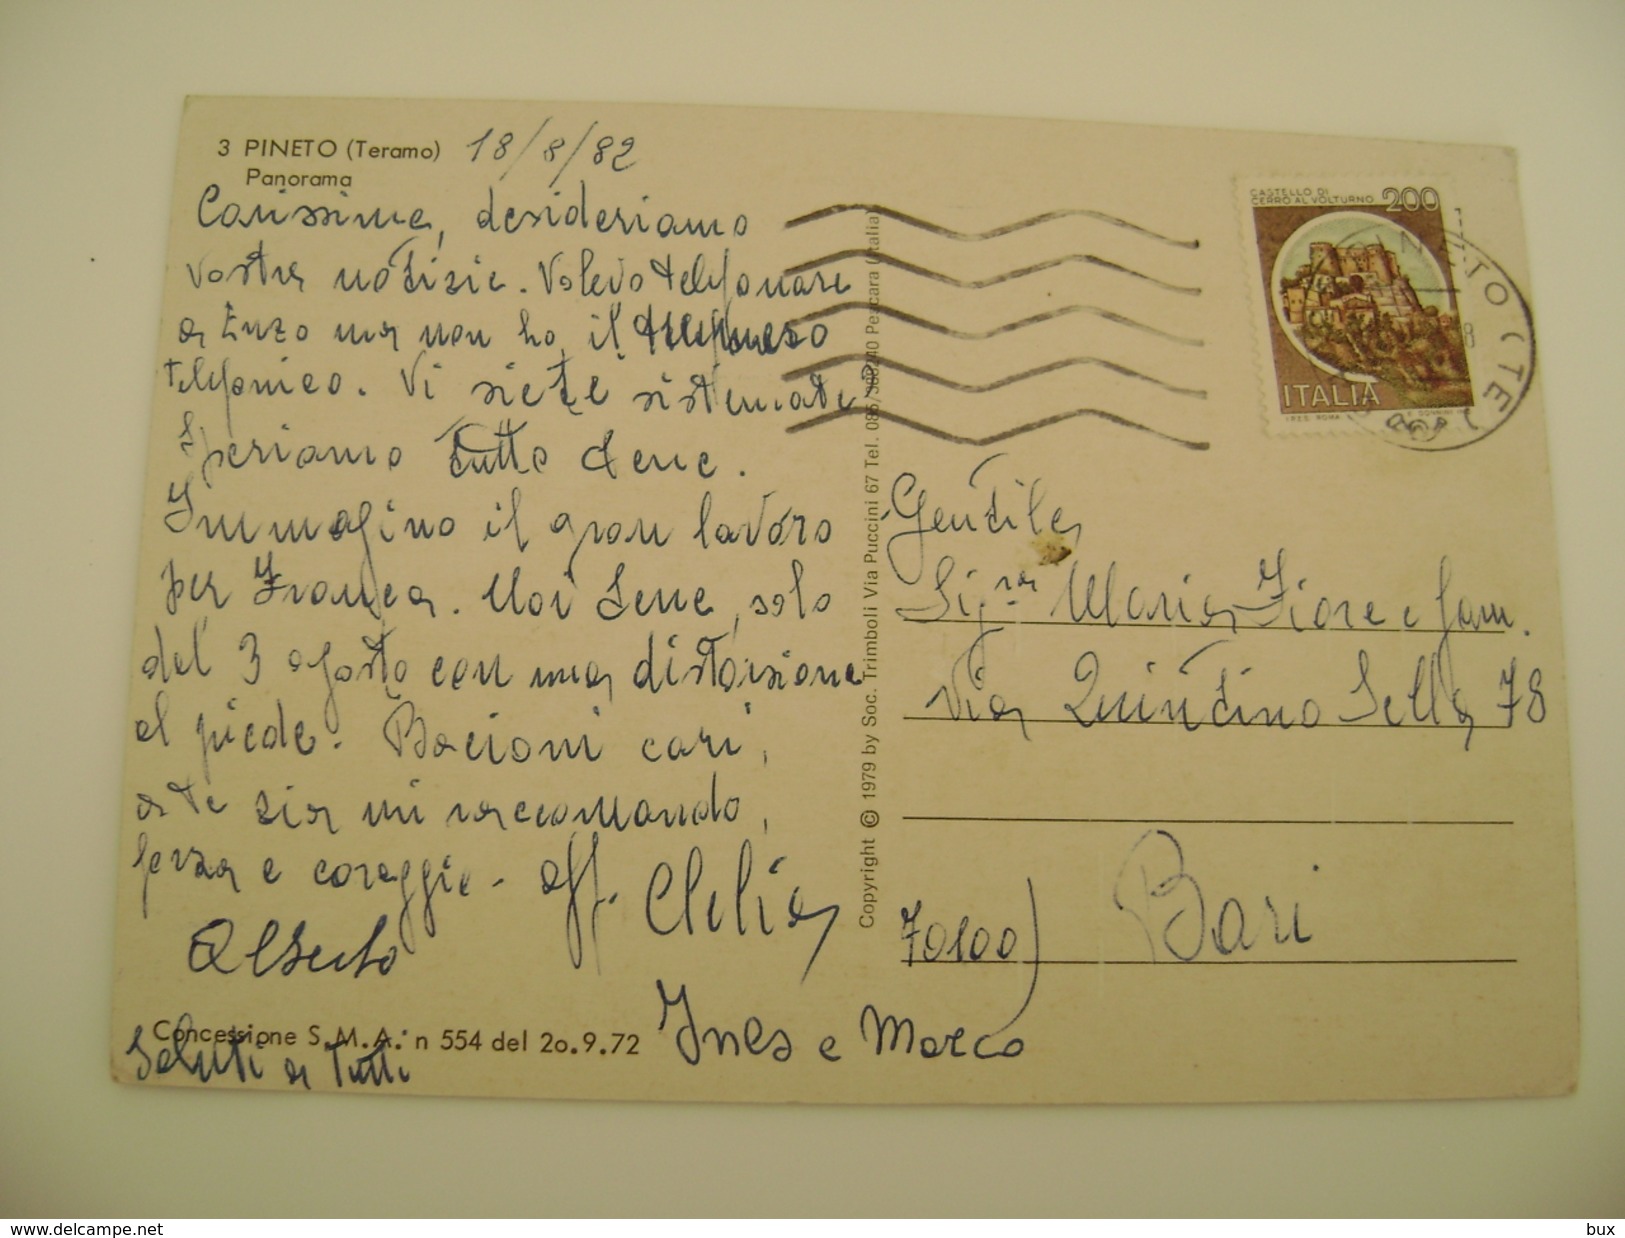 3 PINETO (Teramo) 18/8/82
Panorama
Carissime, desideriamo
vostre notizie. Volevo telefonare
a Enzo ma non ho il
telefonico. Vi siete sistemate
Speriamo tutto bene.
Immagino il gran lavoro
per Franca. Noi bene, solo
dal 3 agosto con una distorsione
al piede. Bacioni cari,
a te zia mi raccomando,
forza e coraggio - aff. Clelia
Alberto
Concessione S.M.A. n 554 del 20.9.72
Ines e Marco
Saluti a tutti
Copyright © 1979 by Soc. Trimboli Via Puccini 67 Tel. 085/ Pescara (Italia)
CASTELLO DI
CERRO AL VOLTURNO 200
ITALIA
I.P.Z.S. ROMA
PINETO (TE)
Gentile
Sig.ra Maria Fiore e fam.
Via Quintino Sella 78
70100) Bari
www.delcampe.net
bux